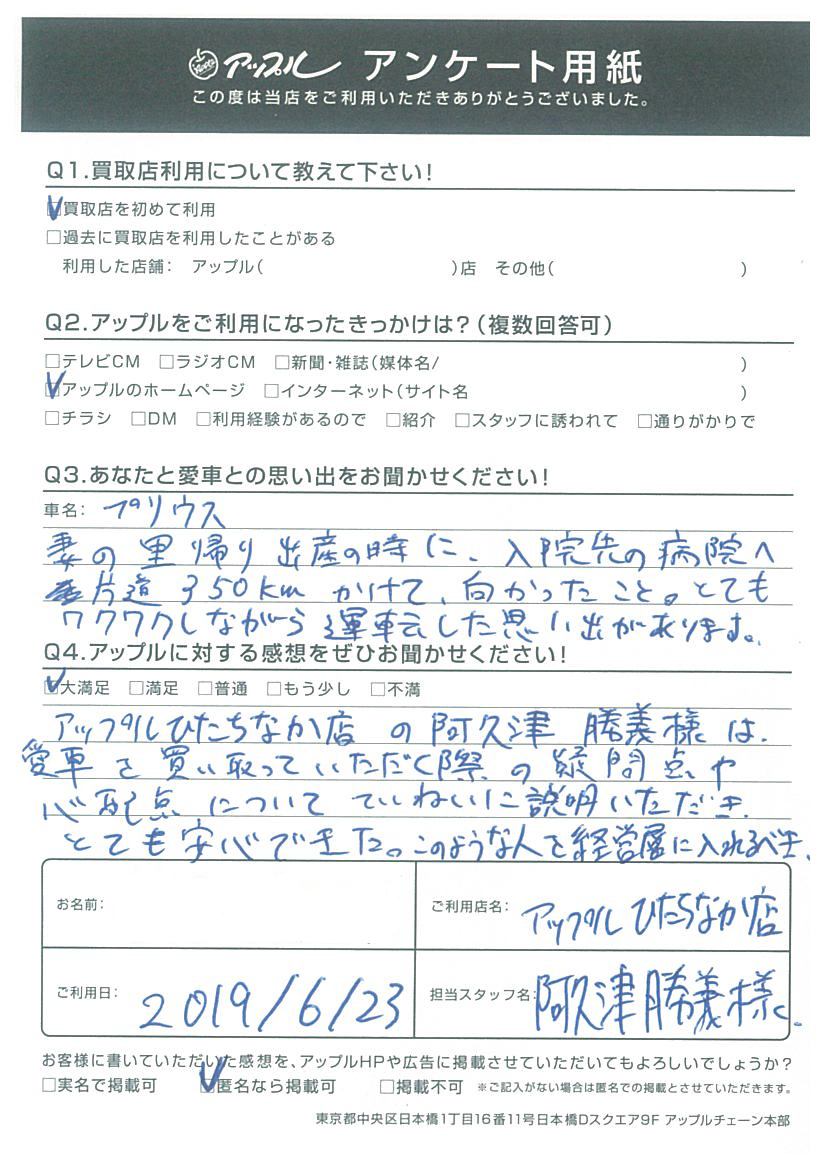 アップル アンケート用紙
この度は当店をご利用いただきありがとうございました。
Q1.買取店利用について教えて下さい!
☑買取店を初めて利用
□過去に買取店を利用したことがある
利用した店舗: アップル( )店 その他( )
Q2.アップルをご利用になったきっかけは?(複数回答可)
□テレビCM □ラジオCM □新聞・雑誌(媒体名/ )
☑アップルのホームページ □インターネット(サイト名 )
□チラシ □DM □利用経験があるので □紹介 □スタッフに誘われて □通りがかりで
Q3.あなたと愛車との思い出をお聞かせください!
車名: プリウス
妻の里帰り出産の時に、入院先の病院へ
片道350kmかけて、向かったこと。とても
ワクワクしながら運転した思い出があります。
Q4.アップルに対する感想をぜひお聞かせください!
☑大満足 □満足 □普通 □もう少し □不満
アップルひたちなか店の阿久津 勝義様は、
愛車を買い取っていただく際の疑問点や
心配点についてていねいに説明いただき、
とても安心できた。このような人を経営層に入れるべき、
お名前:
ご利用店名: アップルひたちなか店
ご利用日: 2019/6/23
担当スタッフ名: 阿久津勝義様。
お客様に書いていただいた感想を、アップルHPや広告に掲載させていただいてもよろしいでしょうか?
□実名で掲載可 ☑匿名なら掲載可 □掲載不可 ※ご記入がない場合は匿名での掲載とさせていただきます。
東京都中央区日本橋1丁目16番11号日本橋Dスクエア9F アップルチェーン本部